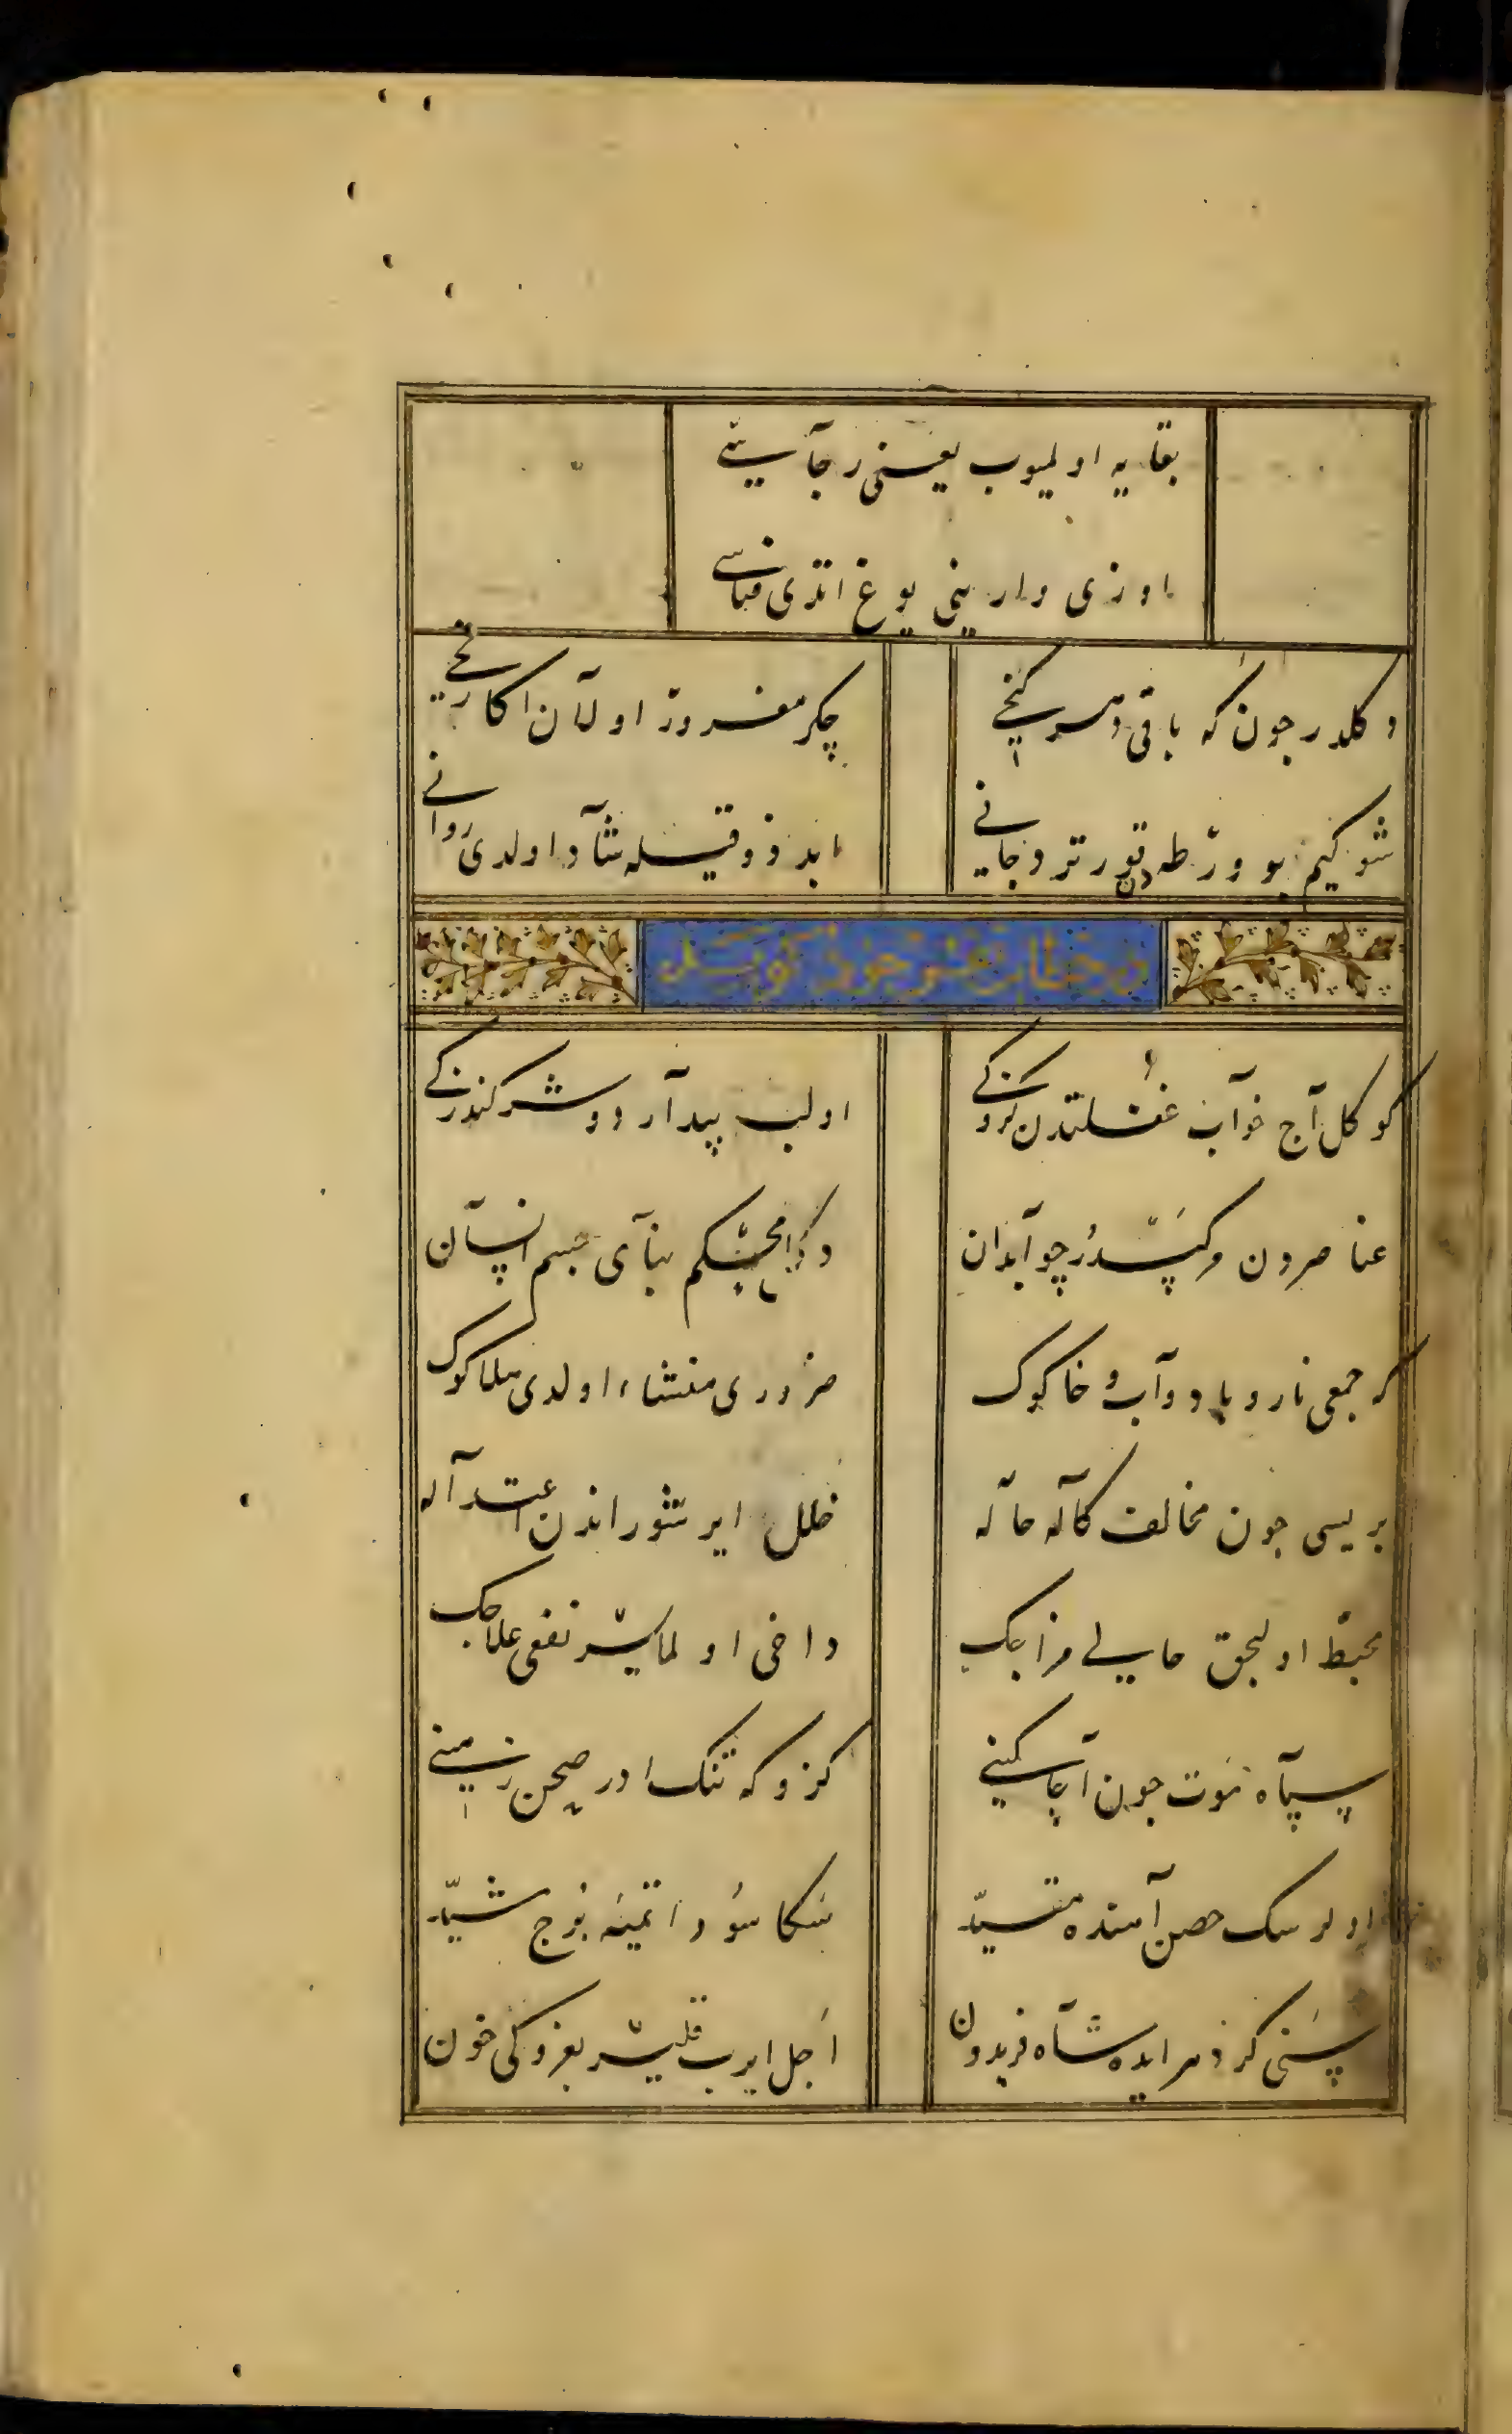 بقایه اولمیوب یعنی رجآسی
اوزی وارینی یوغ اتدی فناسی
دکلدر چونکه باقی دهر کنجی چکر مغرور اولآن اکا رنجی
شو کیم بو ورطه دن قورتردی جانی ابد ذوقیله شآد اولدی روانی
در خطاب نفس خود کوید
کوکل آچ خوآب غفلتدن کوزکی اولب بیدآر دوشر کندزکی
عناصردن مرکبدر چو ابدان دکل محکم بنآی جسم انسآن
که جمعی نار و باد و آب و خاکوک ضروری منشاء اولدی هلاکوک
بریسی چون مخالف کآله حآله خلل ایرشور اندن اعتدآله
محبط اولیجق حالی مزاجک داخی اولماسر نفعی علاجک
سپآه موت چون آچا کمینی کزوکه تنک ادر صحن زمینی
اولرسک حصن آهنده مقید سکا سود اتمیه برج مشید
سنی کر دهر ایده شآه فریدون اجل ایرب قلیسر بغروکی خون